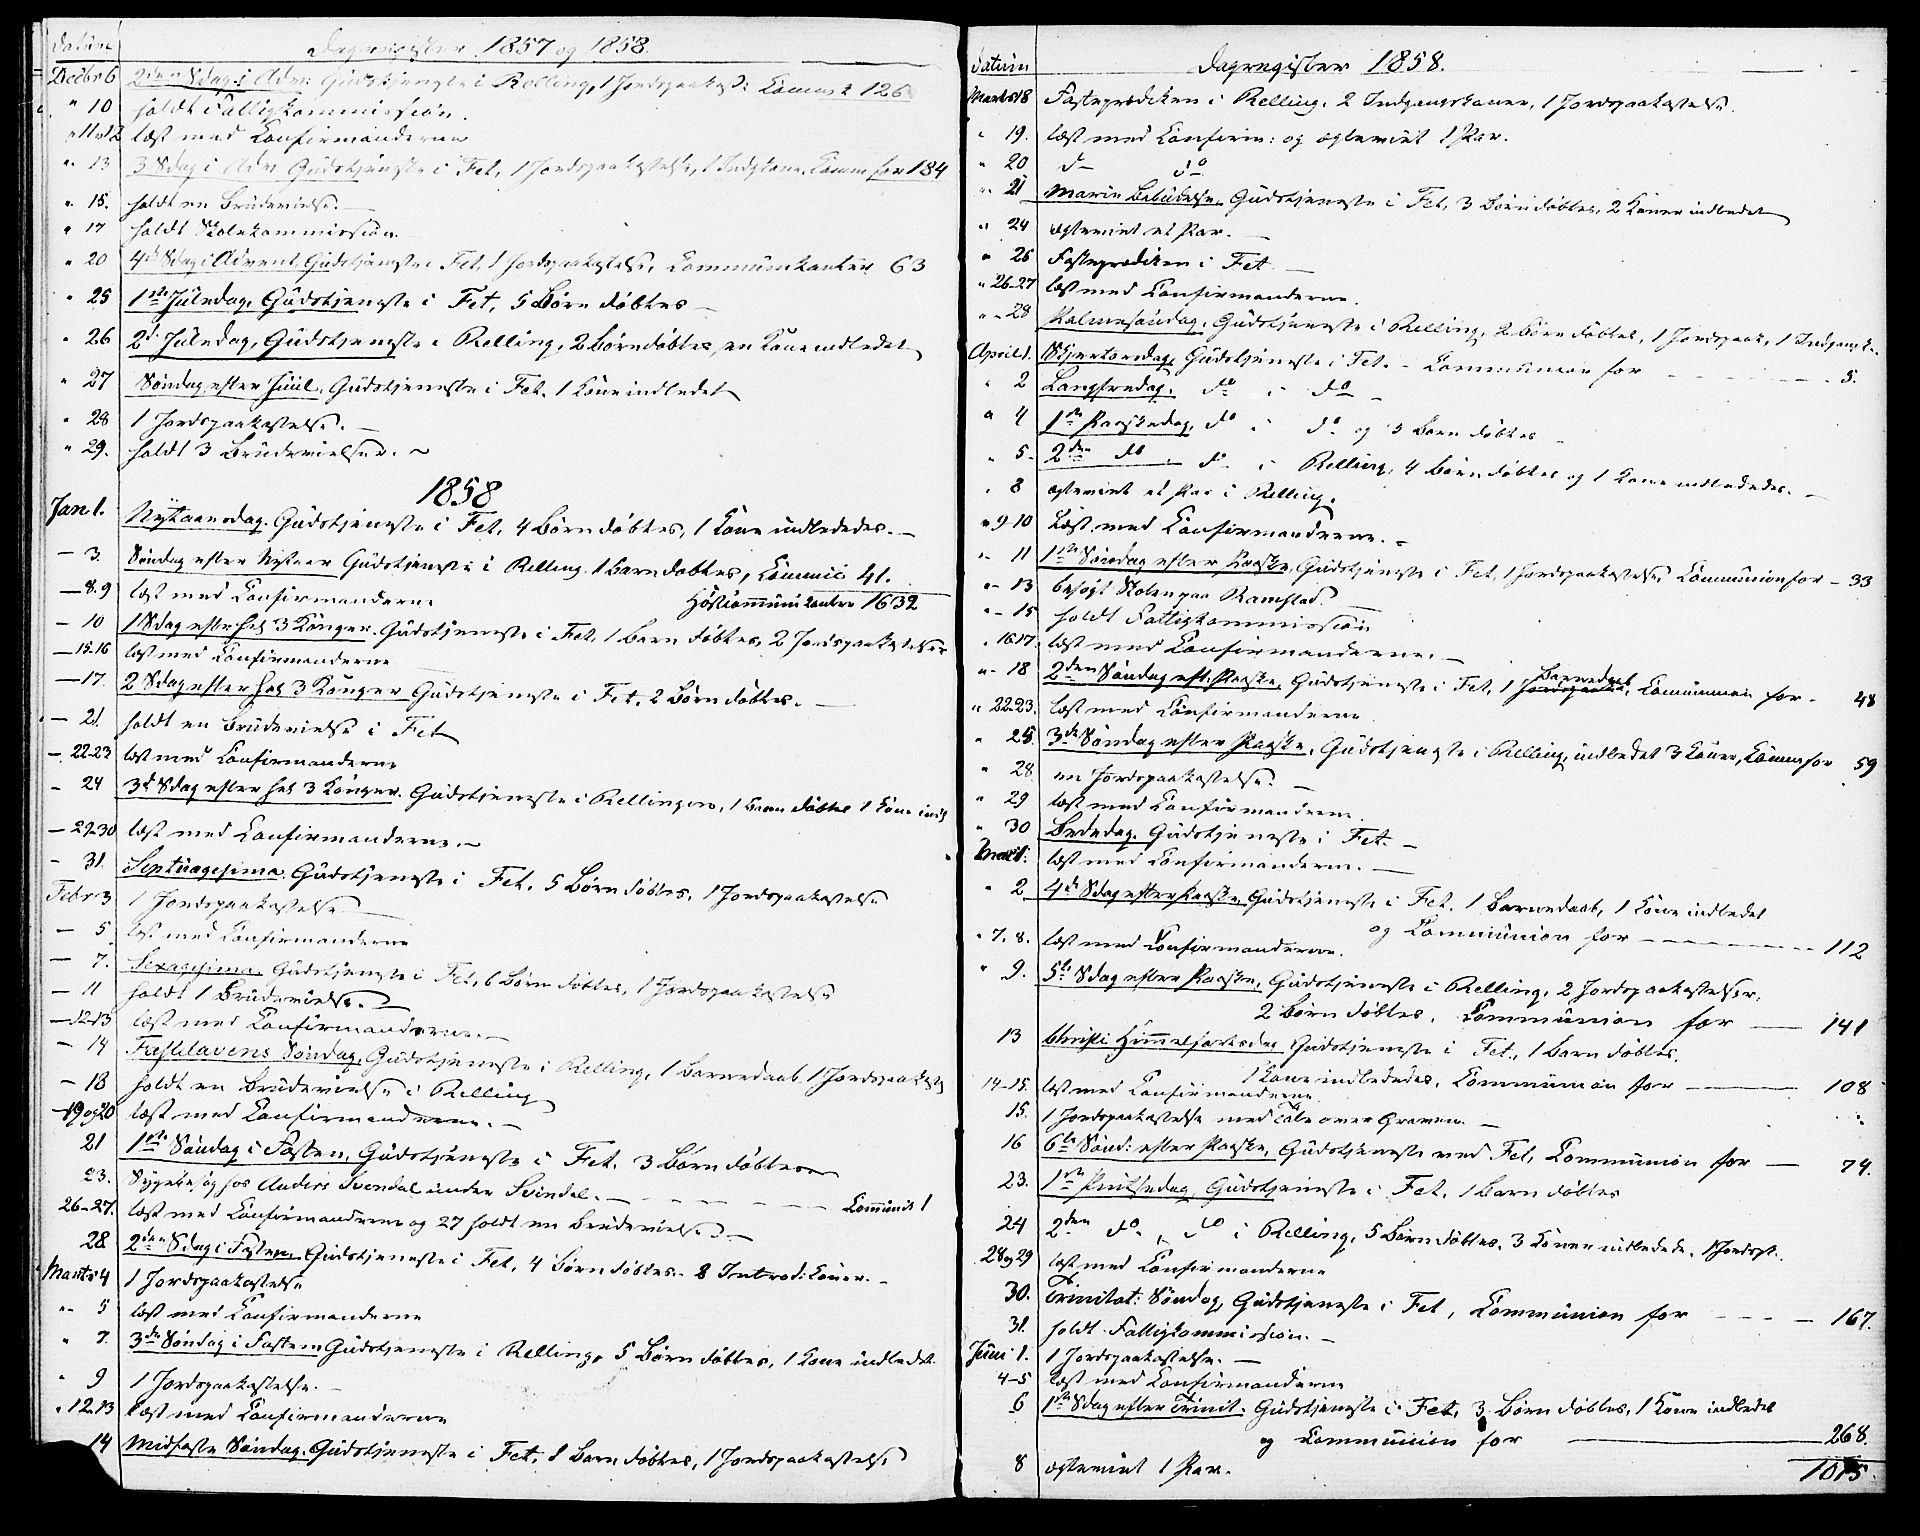 Datum
Dagregister 1857 og 1858.
Decbr 6 2den Sdag i Adv: Gudstjeneste i Rælling, 1 Jordspaakast: Commun: 126
" 10 holdt Fattigkommission.
" 11 o 12 læst med Confirmanderne
" 13 3 Sdag i Adv Gudstjeneste i Fet, 1 Jordspaakastelse, 1 Indg.kone. Comm for 184
" 15. holdt en Brudevielse.
" 17 holdt Skolekommission.
" 20 4de Sdag i Advent, Gudstjeneste i Fet, 1 Jordspaakastelse, Communikanter 63
" 25 1ste Juledag, Gudstjeneste i Fet, 5 Børn døbtes
" 26 2d. Juledag, Gudstjeneste i Rælling, 2 Børn døbtes, en Kone indledet
" 27 Søndag efter Juul, Gudstjeneste i Fet, 1 Kone indledet
" 28 1 Jordspaakastelse.
" 29. holdt 3 Brudevielser.
1858
Jan 1. Nytaarsdag. Gudstjeneste i Fet, 4 Børn døbtes, 1 Kone indlededes.
— 3. Søndag efter Nytaar Gudstjeneste i Rælling. 1 Barn døbtes, Commu 41.
— 8. 9 læst med Confirmanderne Høstcommunikanter 1632
— 10 1 Sdag efter hel 3 Konger. Gudstjeneste i Fet, 1 Barn døbtes, 2 Jordspaakastelser
— 15-16 læst med Confirmanderne
— 17. 2 Sdag efter hel 3 Konger Gudstjeneste i Fet, 2 Børn døbtes.
— 21. holdt en Brudevielse i Fet
— 22-23 læst med Confirmanderne
— 24 3d Sdag efter hel 3 Konger. Gudstjeneste i Rællingen, 1 Barn døbtes 1 Kone indl
— 29-30 læst med Confirmanderne.
— 31. Septuagesima. Gudstjeneste i Fet, 5 Børn døbtes, 1 Jordspaakastelse
Febr 3 1 Jordspaakastelse
— 5 læst med Confirmanderne
— 7. Sexagesima, Gudstjeneste i Fet, 6 Børn døbtes, 1 Jordspaakastelse
— 11 holdt 1 Brudevielse.
— 12-13 læst med Confirmanderne.
— 14 Fastelavens Søndag, Gudstjeneste i Rælling, 1 Barnedaab. 1 Jordspaakast
— 18 holdt en Brudevielse i Rælling
— 19 og 20 læst med Confirmanderne.
21 1ste Søndag i Fasten, Gudstjeneste i Fet. 3 Børn døbtes
23. Sygebesøg hos Anders Svendal under Svindal. — Communik 1
26-27. læst med Confirmanderne og 27 holdt en Brudevielse
28 2den Sdag i Fasten, Gudstjeneste i Fet, 4 Børn døbtes. 8 Introd: Koner.
Marts 4 1 Jordspaakastelse
" 5 læst med Confirmanderne
" 7. 3die Søndag i Fasten Gudstjeneste i Rælling, 5 Børn døbtes, 1 Kone indledet.
" 9 1 Jordspaakastelse.
" 12-13 læst med Confirmanderne
14 Midfaste Søndag. Gudstjeneste i Fet, 1 Barn døbtes, 1 Jordspaakastelse
Datum
Dagregister 1858.
Marts 18 Fasteprædiken i Rælling, 2 Indgangskoner, 1 Jordspaakastelse.
" 19. læst med Confirm: og ægteviet 1 Par.
" 20 d- do
" 21 Mariæ Bebudelse, Gudstjeneste i Fet, 3 Børn døbtes, 2 Koner indledet
" 24 ægteviet et Par.
" 25 Fasteprædiken i Fet
" 26-27 læst med Confirmanderne.
" 28 Palmesøndag, Gudstjeneste i Rælling, 2 Børn døbtes, 1 Jordspaak, 1 Indgangsk.
April 1. Skjertorsdag, Gudstjeneste i Fet. - Communion for — 5.
" 2 Langfredag. do i do
" 4 1ste Paaskedag, do i do og 3 Børn døbtes
" 5. 2den do, do i Rælling, 4 Børn døbtes og 1 Kone indlededes.
" 8 ægteviet et Par i Rælling.
" 9-10 Læst med Confirmanderne.
" 11 1ste Søndag efter Paaske, Gudstjeneste i Fet, 1 Jordspaakastelse Communion for — 33
" 13 besøgt Skolen paa Ramstad.
" 15 holdt Fattigkommission
" 16 17. læst med Confirmanderne.
" 18 2den Søndag eft. Paaske, Gudstjeneste i Fet, 1 Barnedaab, Communion for - 48
" 22-23. læst med Confirmanderne
" 25. 3die Søndag efter Paaske, Gudstjeneste i Rælling, indledet 3 Koner, Commu for 59
" 28 en Jordspaakastelse.
" 29 læst med Confirmanderne.
" 30 Bededag. Gudstjeneste i Fet.
Mai 1. læst med Confirmanderne.
" 2 4de Sdag efter Paaske Gudstjeneste i Fet. 1 Barnedaab, 1 Kone indledet
og Communion for — 112
" 7. 8. læst med Confirmanderne.
" 9. 5te Sdag efter Paaske, Gudstjeneste i Rælling. 2 Jordspaakastelser.
2 Børn døbtes. Communion for — 141
13 Christi Himmelfartsdag Gudstjeneste i Fet, 1 Barn døbtes.
1 Kone indlededes, Communion for — 108
14-15. læst med Confirmanderne
15. 1 Jordspaakastelse med Tale over Graven.
16 6te Sønd: efter Paaske, Gudstjeneste ved Fet, Communion for — 74.
23. 1ste Pintsedag, Gudstjeneste i Fet, 1 Barn døbtes
24 2den do, do i Rælling, 5 Børn døbtes. 3 Koner indledede. 1 Jordsp.
28 og 29 læst med Confirmanderne
30. Trinitat: Søndag, Gudstjeneste i Fet, Communion for — 167.
31. holdt Fattigkommission.
Juni 1. 1 Jordspaakastelse.
4-5 læst med Confirmanderne
6 1ste Sdag efter Trinit. Gudstjeneste i Fet, 3 Børn døbtes, 1 Kone indledet
og Communion for — 268.
8 ægteviet 1 Par. 1015